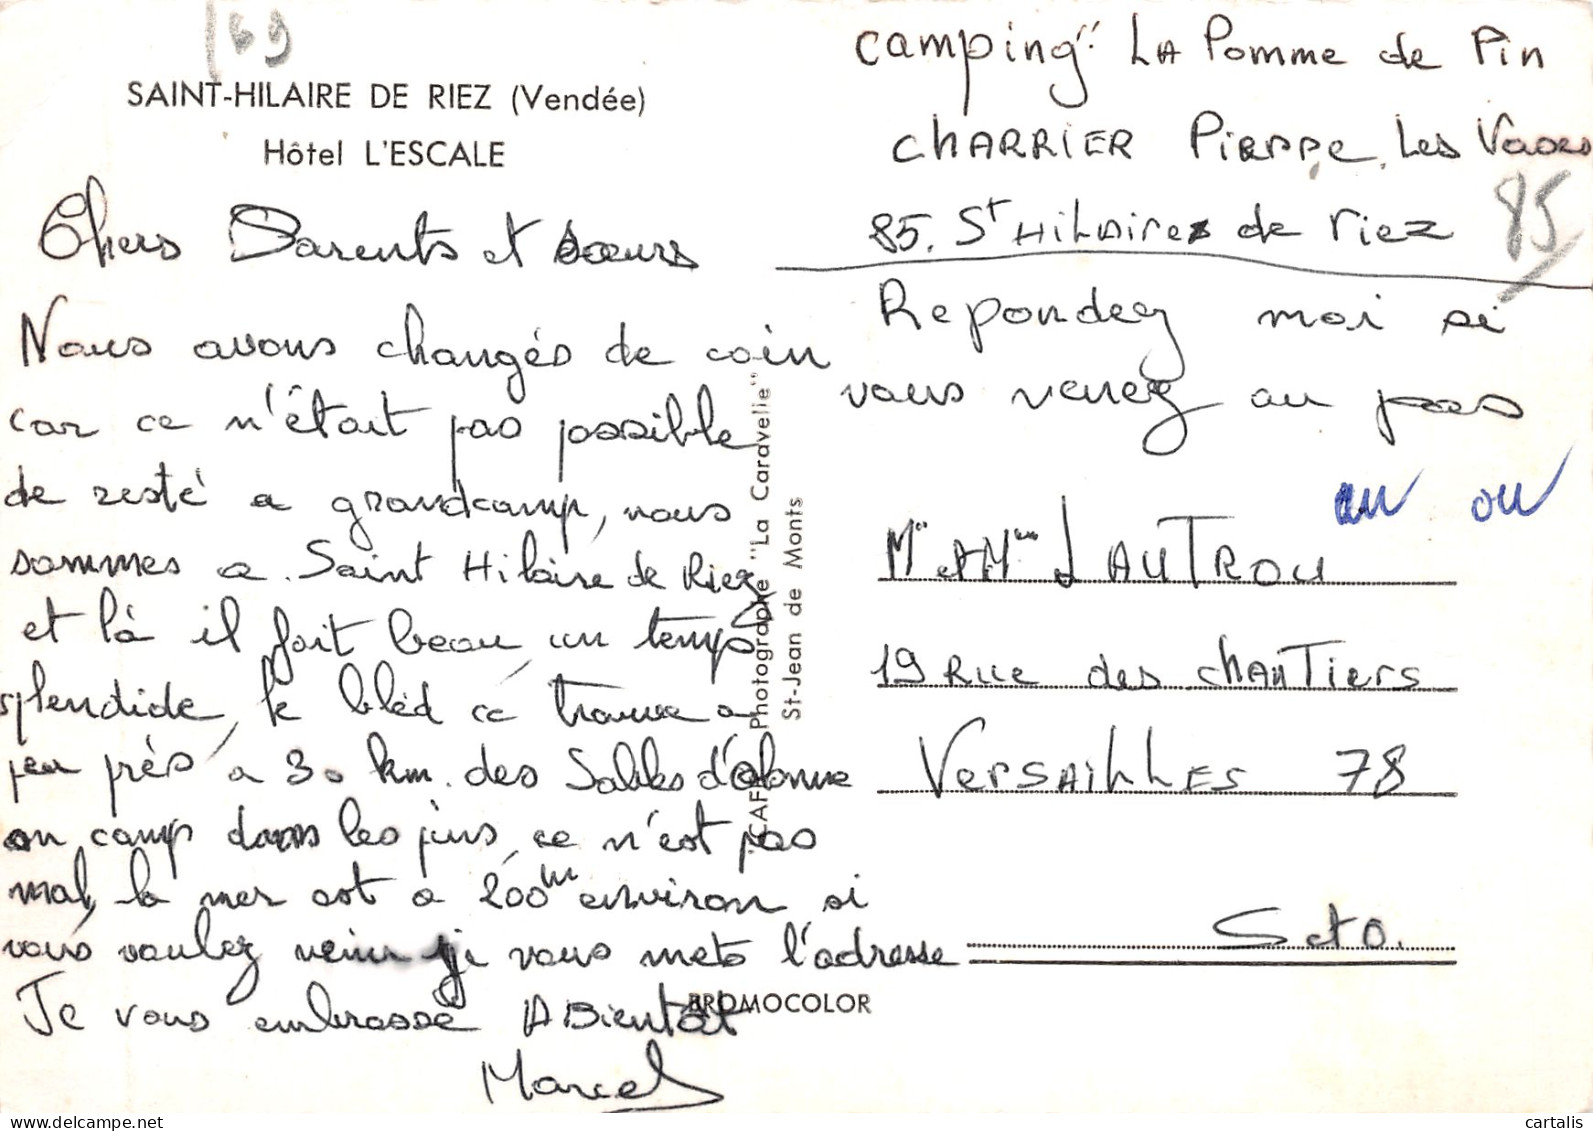 169
SAINT-HILAIRE DE RIEZ (Vendée)
Hôtel L'ESCALE
Chers Parents et sœurs
Nous avons changés de coin
car ce n'était pas possible
de resté a grandcamp, nous
sommes a Saint Hilaire de Riez
et là il fait beau un temps
splendide, le bled ce trouve a
peu près a 30 km. des Sables d'olonne
on camp dans les pins, ce n'est pas
mal, la mer est a 200m environ si
vous voulez venir je vous mets l'adresse
Je vous embrasse A Bientôt
Marcel
camping "LA Pomme de Pin
CHARRIER Pierre, Les
85. St HiLAire de riez
85
Repondez moi si
vous venez au pas
au ou
Mr et Mme LAUTROU
19 Rue des CHANTiers
VERSAILLES 78
S et O.
CAFI Photographe "La Caravelle"
St-Jean de Monts
BROMOCOLOR
cartalis